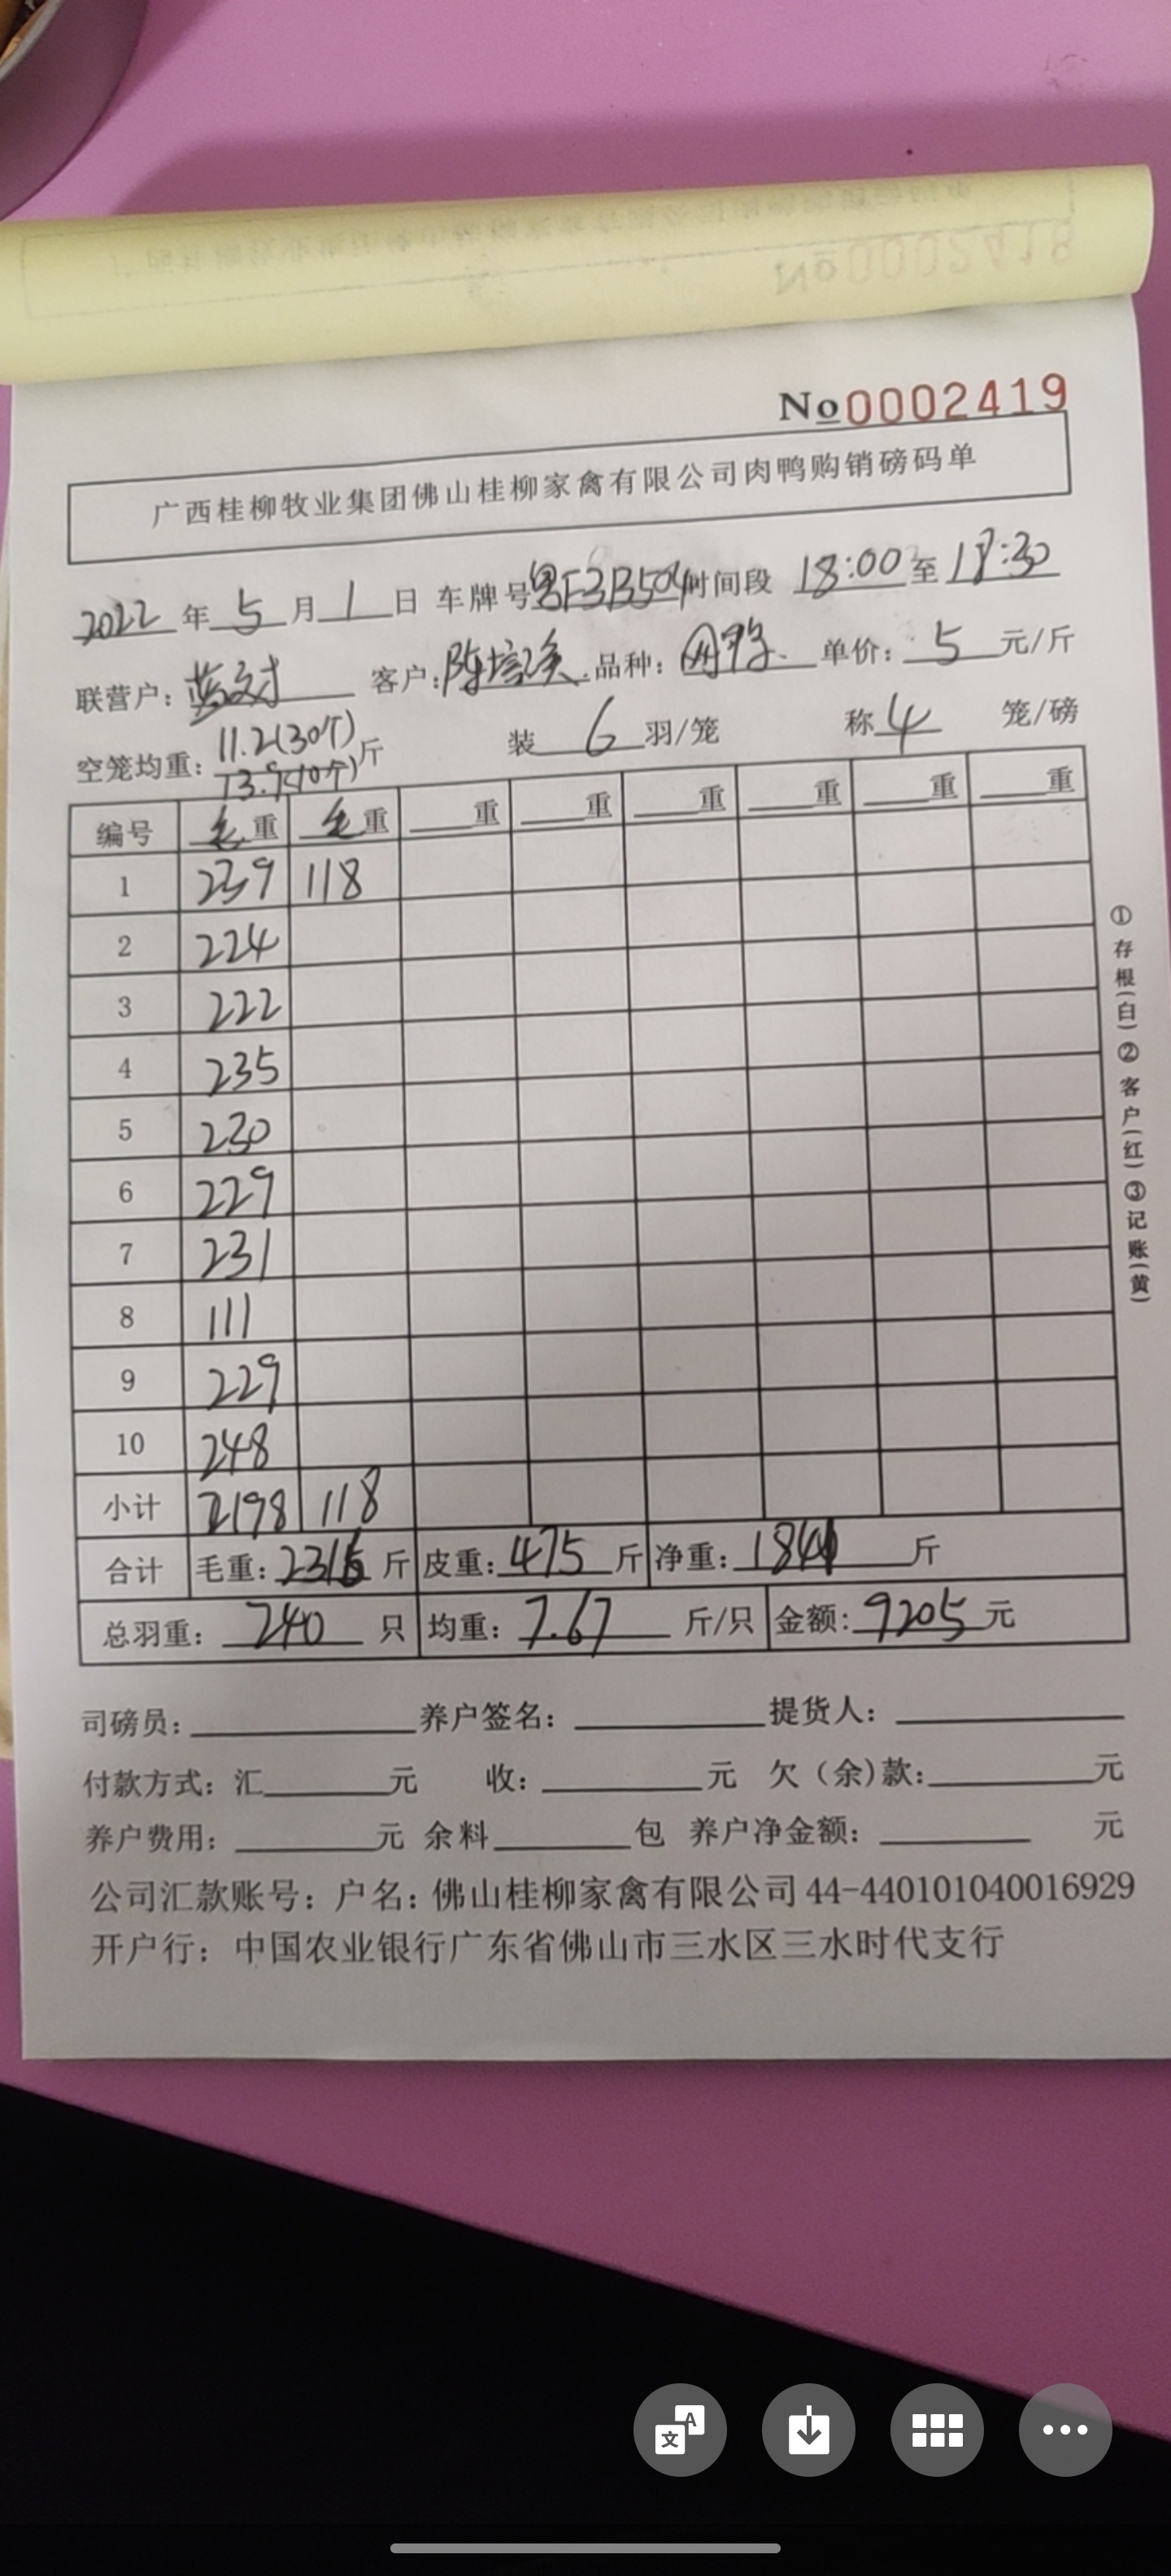 No0002418
No0002419
广西桂柳牧业集团佛山桂柳家禽有限公司肉鸭购销磅码单
2022年5月1日 车牌号粤F3B504时间段 18:00至18:30
联营户: 客户:陈培 品种: 单价:5元/斤
空笼均重:11.2(30个) 13.9(10个)斤 装6羽/笼 称4笼/磅
编号 毛重 毛重 重 重 重 重 重 重
1 239 118
2 224
3 222
4 235
5 230
6 229
7 231
8 111
9 229
10 248
小计 2198 118
合计 毛重:2316斤 皮重:475斤 净重:1841斤
总羽重:240只 均重:7.67斤/只 金额:9205元
司磅员: 养户签名: 提货人:
付款方式:汇 元 收: 元 欠(余)款: 元
养户费用: 元 余料 包 养户净金额: 元
公司汇款账号:户名:佛山桂柳家禽有限公司44-440101040016929
开户行:中国农业银行广东省佛山市三水区三水时代支行
①存根(白)②客户(红)③记账(黄)